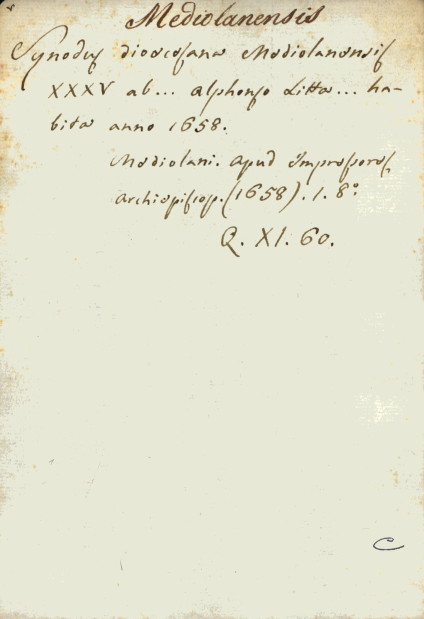 Mediolanensis
Synodus dioecesana Mediolanensis
XXXV ab... Alphonso Litta... ha-
bita anno 1658.
Mediolani. apud Impressores
archiepiscop. (1658). 1. 8°.
Q. XI. 60.
C